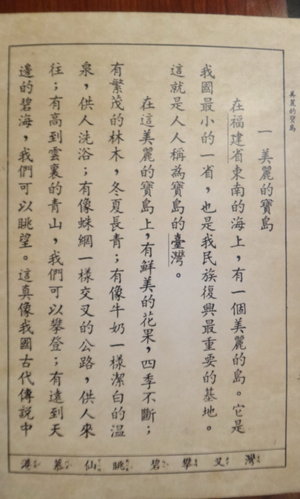 美麗的寶島
一 美麗的寶島
在福建省東南的海上，有一個美麗的島。它是
我國最小的一省，也是我民族復興最重要的基地。
這就是人人稱為寶島的臺灣。
在這美麗的寶島上，有鮮美的花果，四季不斷；
有繁茂的林木，冬夏長青；有像牛奶一樣潔白的溫
泉，供人洗浴；有像蛛網一樣交叉的公路，供人來
往；有高到雲裏的青山，我們可以攀登；有遠到天
邊的碧海，我們可以眺望。這真像我國古代傳說中
灣 叉 攀 碧 眺 仙 蓬